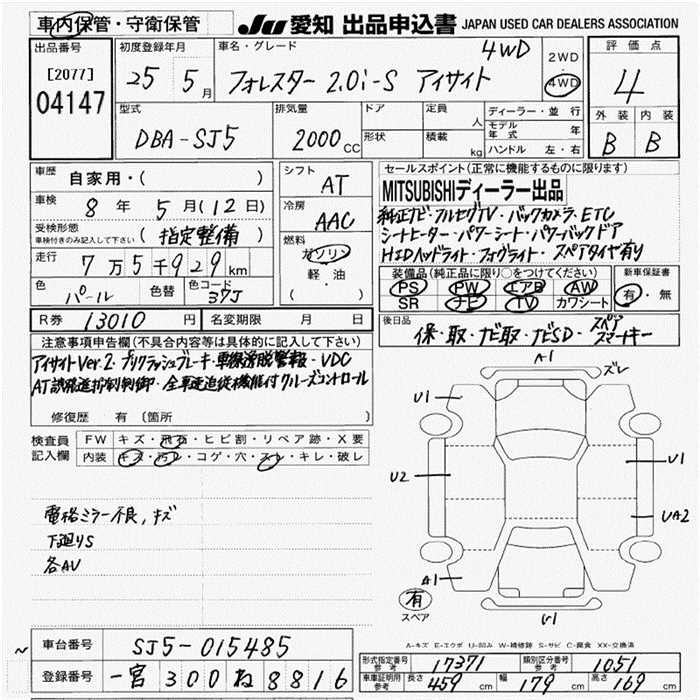 車内保管・守衛保管
JU 愛知 出品申込書 JAPAN USED CAR DEALERS ASSOCIATION
出品番号
[2077]
04147
初度登録年月
25 5月
車名・グレード
4WD
フォレスター 2.0i-S アイサイト
2WD
・
4WD
評価点
4
外装 内装
B B
型式
DBA-SJ5
排気量
2000cc
ドア
形状
定員 人
積載 kg
ディーラー・並行
モデル年式 年
ハンドル 左・右
車歴
自家用・( )
車検
8年 5月(12日)
受検形態
車検付きのみ記入して下さい
(指定整備)
走行
7万5千929km
色
パール
色替
色コード
37J
シフト
AT
冷房
AAC
燃料
ガソリン
軽・油
セールスポイント(正常に機能するものに限ります)
MITSUBISHIディーラー出品
純正ナビ・フルセグTV・バックカメラ・ETC
シートヒーター・パワーシート・パワーバックドア
HIDヘッドライト・フォグライト・スペアタイヤ有り
装備品(純正品に限り○をつけてください)
PS PW エアB AW
SR ナビ TV カワシート
新車保証書
有・無
R券 13010円
名変期限 月 日
後日品
保・取・ナビ取・ナビSD・スペアスマートキー
注意事項申告欄(不具合内容等は具体的に記入して下さい)
アイサイトVer.2・プリクラッシュブレーキ・車線逸脱警報・VDC
AT誤発進抑制制御・全車速追従機能付クルーズコントロール
修復歴 有 〔箇所
検査員
記入欄
FW キズ・飛石・ヒビ割・リペア跡・X要
内装 キズ・汚レ・コゲ・穴・スレ・キレ・破レ
電格ミラー不良,キズ
下廻りS
各AU
A1
ズレ
U1
U2
U1
UA2
A1
有
スペア
U1
A-キズ E-エクボ U-凹み W-補修跡 S-サビ C-腐食 XX-交換済
車台番号
SJ5-015485
登録番号
一宮 300 ね 8816
形式指定番号
参考
17371
類別区分番号
参考
1051
車庫証明用
参考
長さ 459cm
幅 179cm
高さ 169cm